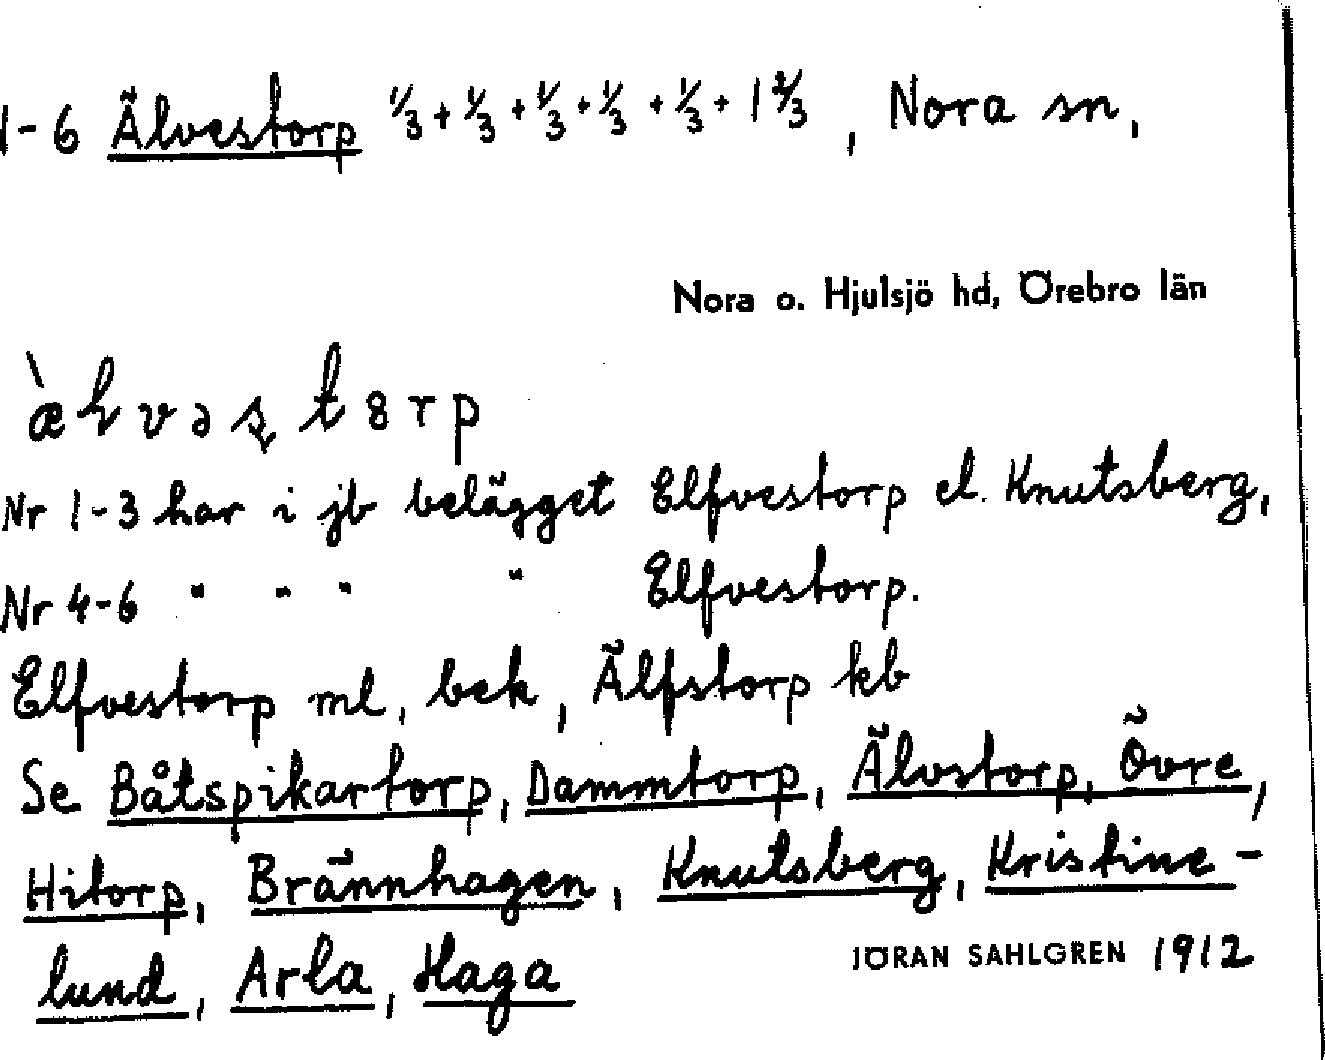 1-6 Älvestorp 1/3 + 1/3 + 1/3 + 1/3 + 1/3 + 1 2/3, Nora sn,
Nora o. Hjulsjö hd, Örebro län
Nr 1-3 har i jb belägget Elfvestorp el. Knutsberg,
Nr 4-6 " " " " Elfvestorp.
Elfvestorp ml, bek, Älfstorp kb
Se Båtspikartorp, Dammtorp, Älvstorp, Övre,
Hitorp, Brännhagen, Knutsberg, Kristine-
lund, Arla, Haga
JÖRAN SAHLGREN 1912